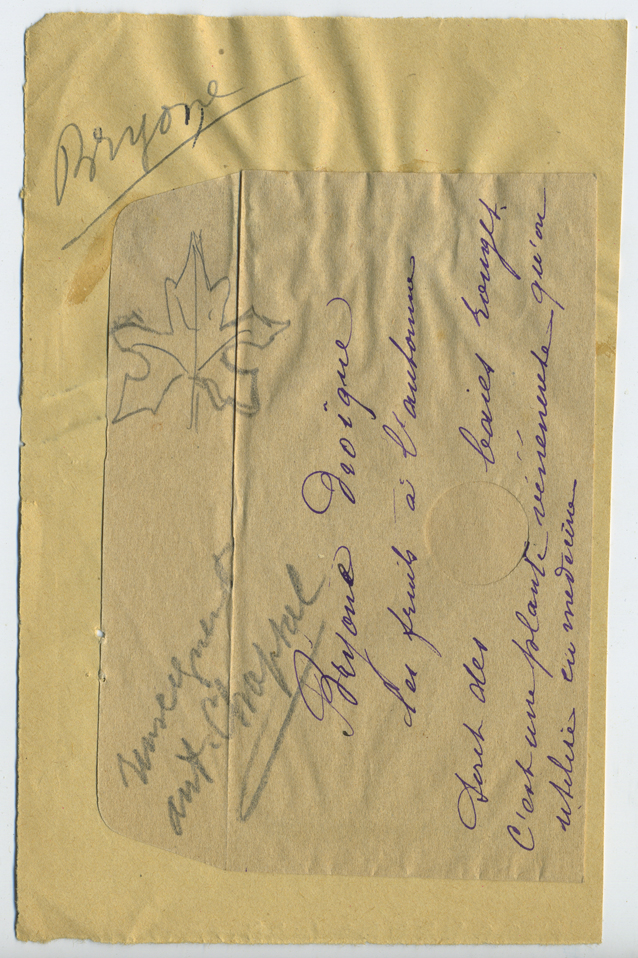 Bryone
Bryone dioïque
Les fruits à l'automne
sont des baies rouges
C'est une plante vénéneuse qu'on
utilise en médecine